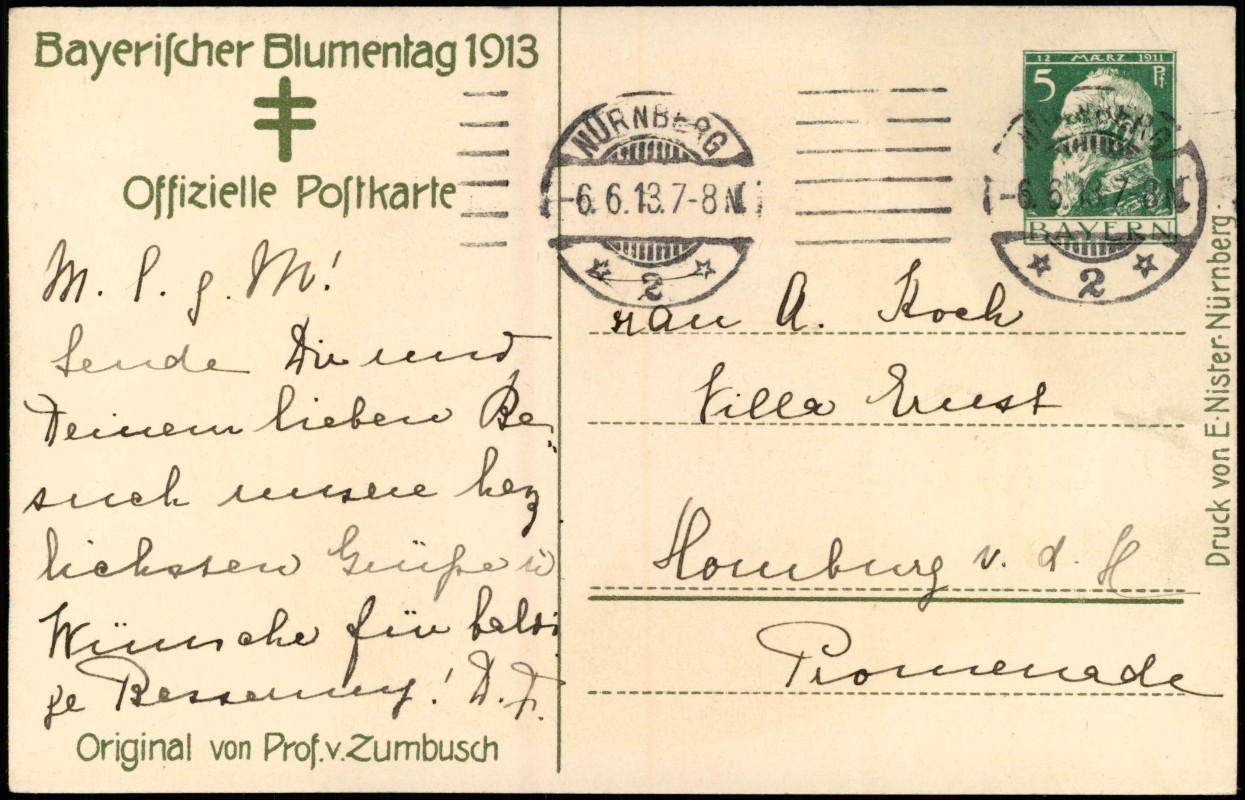 Bayerischer Blumentag 1913
Offizielle Postkarte
M. l. g. M!
Sende Dir und
Deinem lieben Be-
such unsere herz
lichsten Grüße u
Wünsche für baldi
ge Besserung! D. F.
Original von Prof. v. Zumbusch
NÜRNBERG
-6.6.13.7-8N.
2
12 MÆRZ 1911
5 Pf
BAYERN
NÜRNBERG
-6.6.13.7-8N.
2
Frau A. Koch
Villa Ernst
Homburg v. d. H
Promenade
Druck von E. Nister. Nürnberg.